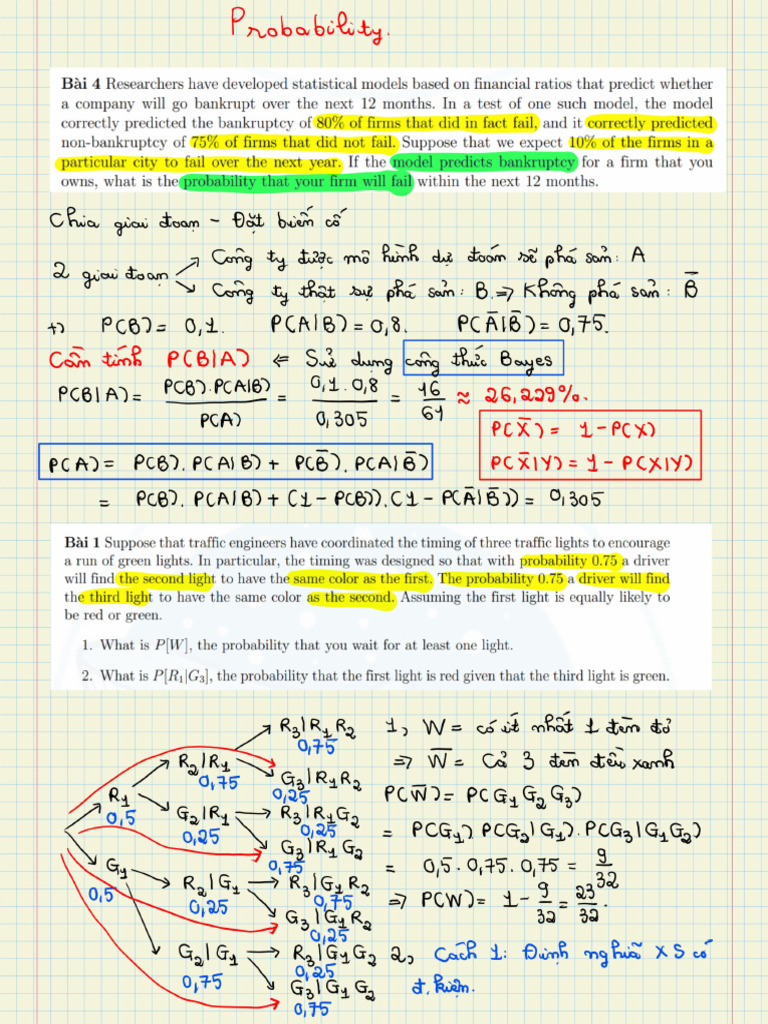 Probability.
Bài 4 Researchers have developed statistical models based on financial ratios that predict whether
a company will go bankrupt over the next 12 months. In a test of one such model, the model
correctly predicted the bankruptcy of 80% of firms that did in fact fail, and it correctly predicted
non-bankruptcy of 75% of firms that did not fail. Suppose that we expect 10% of the firms in a
particular city to fail over the next year. If the model predicts bankruptcy for a firm that you
owns, what is the probability that your firm will fail within the next 12 months.
Chia giai đoạn - Đặt biến cố
2 giai đoạn
Công ty được mô hình dự đoán sẽ phá sản: A
Công ty thật sự phá sản: B. => Không phá sản: B̅
+) P(B) = 0,1. P(A|B) = 0,8. P(A̅|B̅) = 0,75.
Cần tính P(B|A) ⇐ Sử dụng công thức Bayes
P(B|A) = P(B). P(A|B) / P(A) = 0,1. 0,8 / 0,305 = 16/61 ≈ 26,229%.
P(X̅) = 1 - P(X)
P(X̅|Y) = 1 - P(X|Y)
P(A) = P(B). P(A|B) + P(B̅). P(A|B̅)
= P(B). P(A|B) + (1 - P(B)). (1 - P(A̅|B̅)) = 0,305
Bài 1 Suppose that traffic engineers have coordinated the timing of three traffic lights to encourage
a run of green lights. In particular, the timing was designed so that with probability 0.75 a driver
will find the second light to have the same color as the first. The probability 0.75 a driver will find
the third light to have the same color as the second. Assuming the first light is equally likely to
be red or green.
1. What is P[W], the probability that you wait for at least one light.
2. What is P[R₁|G₃], the probability that the first light is red given that the third light is green.
R₁
0,5
G₁
0,5
R₂|R₁
0,75
G₂|R₁
0,25
R₂|G₁
0,25
G₂|G₁
0,75
R₃|R₁R₂
0,75
G₃|R₁R₂
0,25
R₃|R₁G₂
0,25
G₃|R₁G₂
0,75
R₃|G₁R₂
0,75
G₃|G₁R₂
0,25
R₃|G₁G₂
0,25
G₃|G₁G₂
0,75
1, W = có ít nhất 1 đèn đỏ
=> W̅ = Cả 3 đèn đều xanh
P(W̅) = P(G₁G₂G₃)
= P(G₁) P(G₂|G₁). P(G₃|G₁G₂)
= 0,5. 0,75. 0,75 = 9/32
=> P(W) = 1 - 9/32 = 23/32.
2, Cách 1: Định nghĩa XS có
đ.kiện.